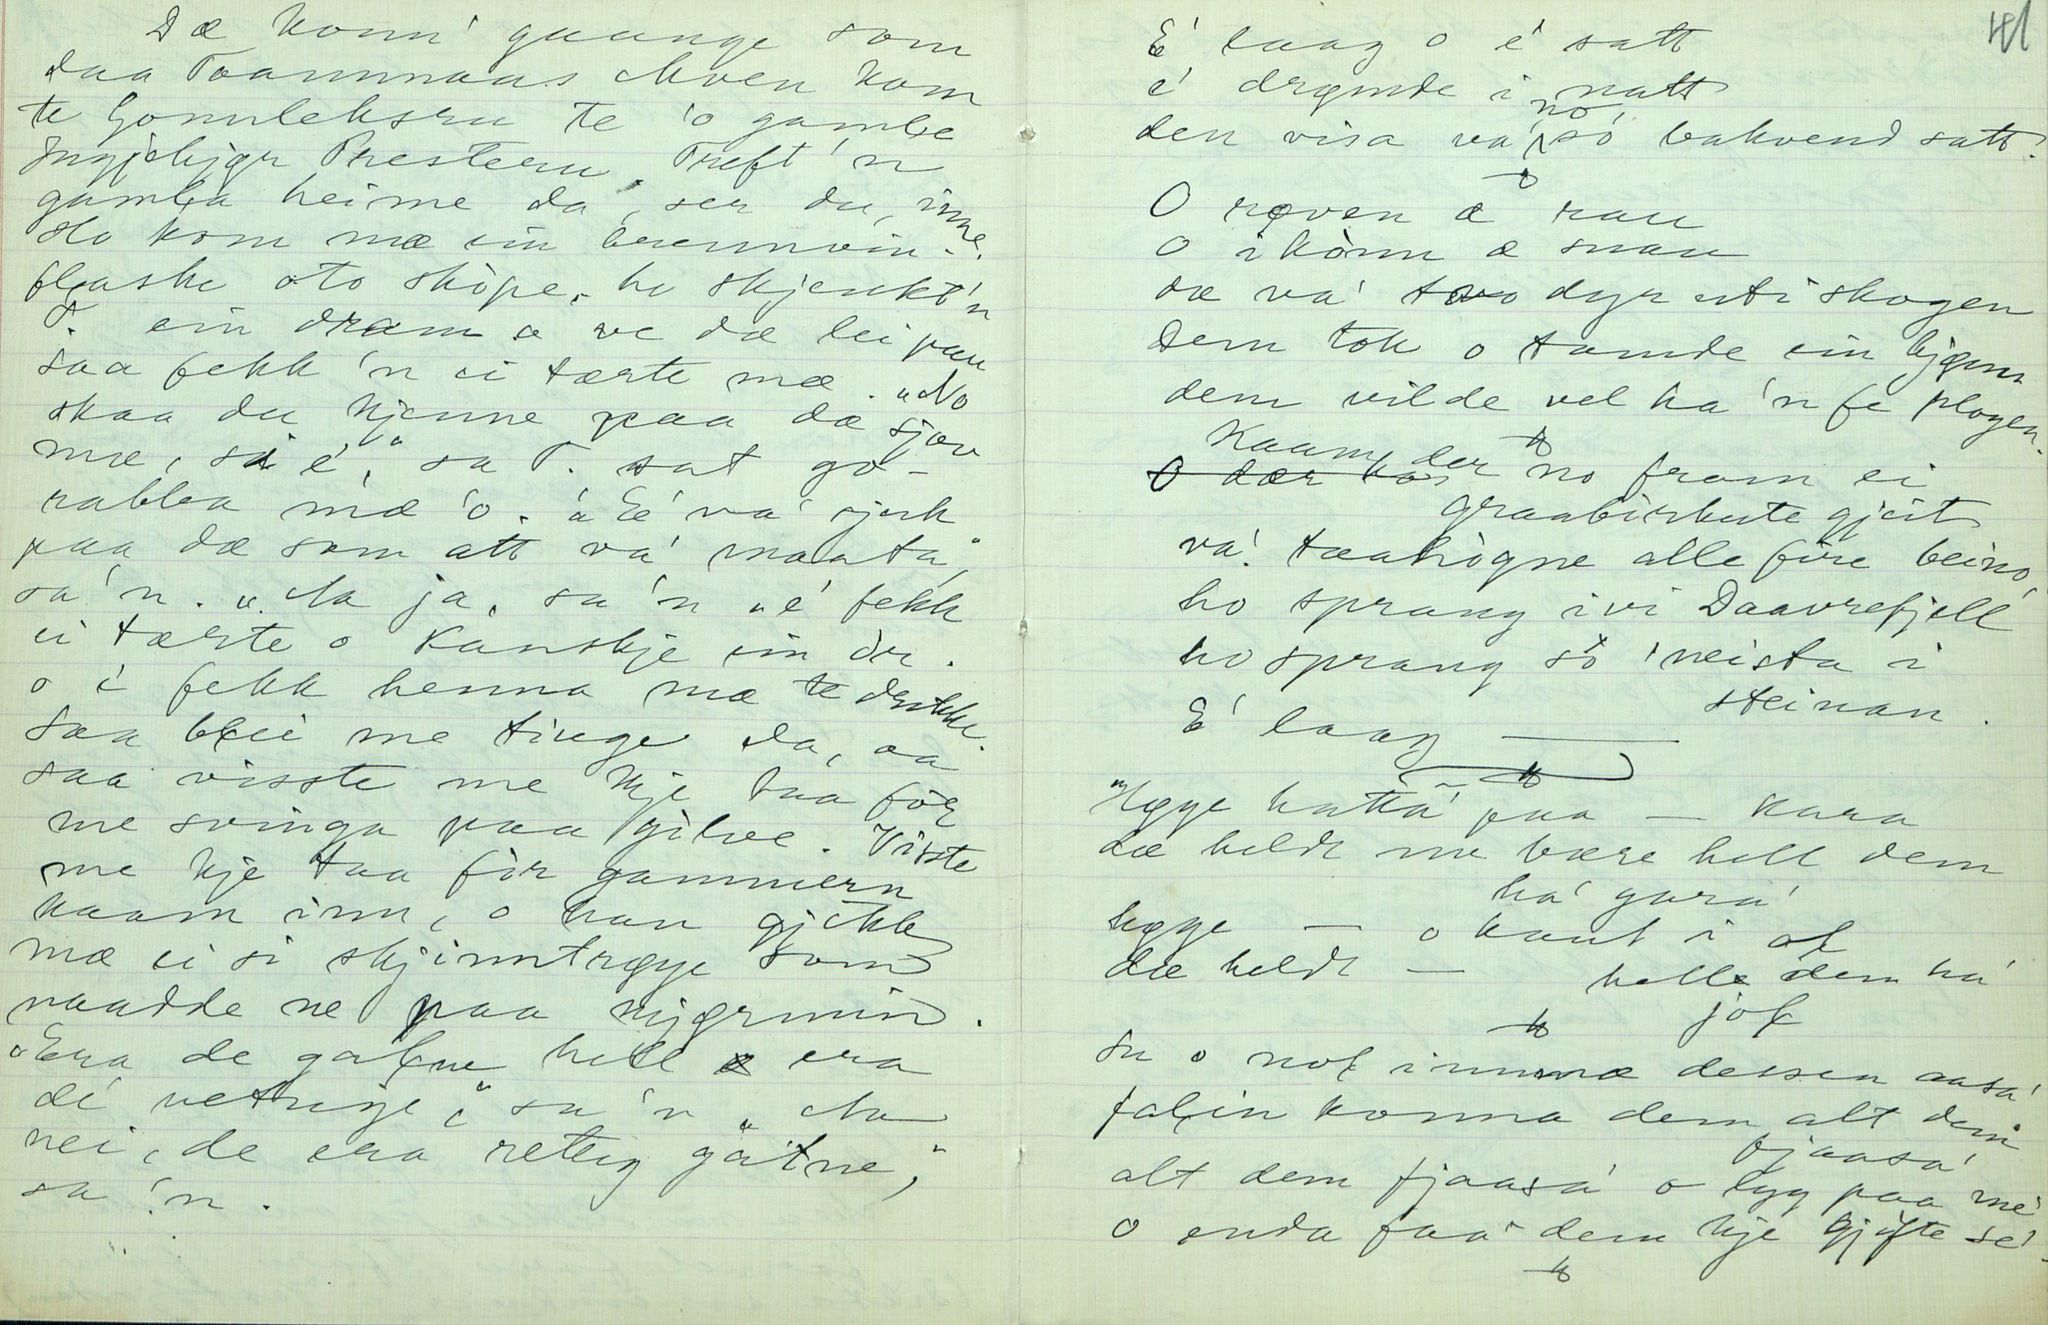 Dæ komm' gaange som
daa Toammaas Moen kom
te Gonnleksru te 'o gamle
Ingjebjør Presteru. Treft 'n
gamła heime da, ser du, inne.
Ho kom mæ ein brennvin-
fłaske oto skòpe. ho skjenkt'n
T. ein dram o ve dæ lei pau
saa fekk 'n ei tærte mæ. "No
skaa du kjenne paa dæ sjøu
mæ, si é," sa T. sat go-
rabbla mæ 'o. "É va' sjuk
paa dæ som att va' maata,"
sa'n. "Na ja, sa'n "é fekk
ei tærte o kanskje ein dr.
o é fekk henna mæ te drikke.
Saa błei me tinge da, aa
saa visste me kje taa før
me svinga paa gòlve. Visste
me kje taa før gammern
kaam inn, o han gjekk
mæ ei si skjinntrøye som
naadde ne paa kjørmin.
"Era de gałne hell era
dé vetrige," sa 'n "Na
nei, de era rettig gałne,"
sa 'n.
41
É laag o é satt
é drømde i natt
den visa va' no só bakvend satt.
O røven æ rau
o ikònn æ snau
dæ va' two dyr uti skogen
Dem tok o tamde ein bjønn
dem vilde vel ha 'n fe plogen.
Kaam der no fram ei
graabirkute gjeit
va' taahògne alle fire beino,
ho sprang ivi Daavrefjell
ho sprang so 'neista i
steinan.
É laag —
"Høge hatta' paa — kara
dæ heldt me bære hell dem
ha' gara'
høge — o kaut i oł
dæ heldt — helle dem ha'
joł
Su o noł innmæ dessen aasa'
fałin komma dem alt dem
fjaasa'
alt dem fjaasa' o lyg paa me'
o enda faa dem kje gjifte se'.